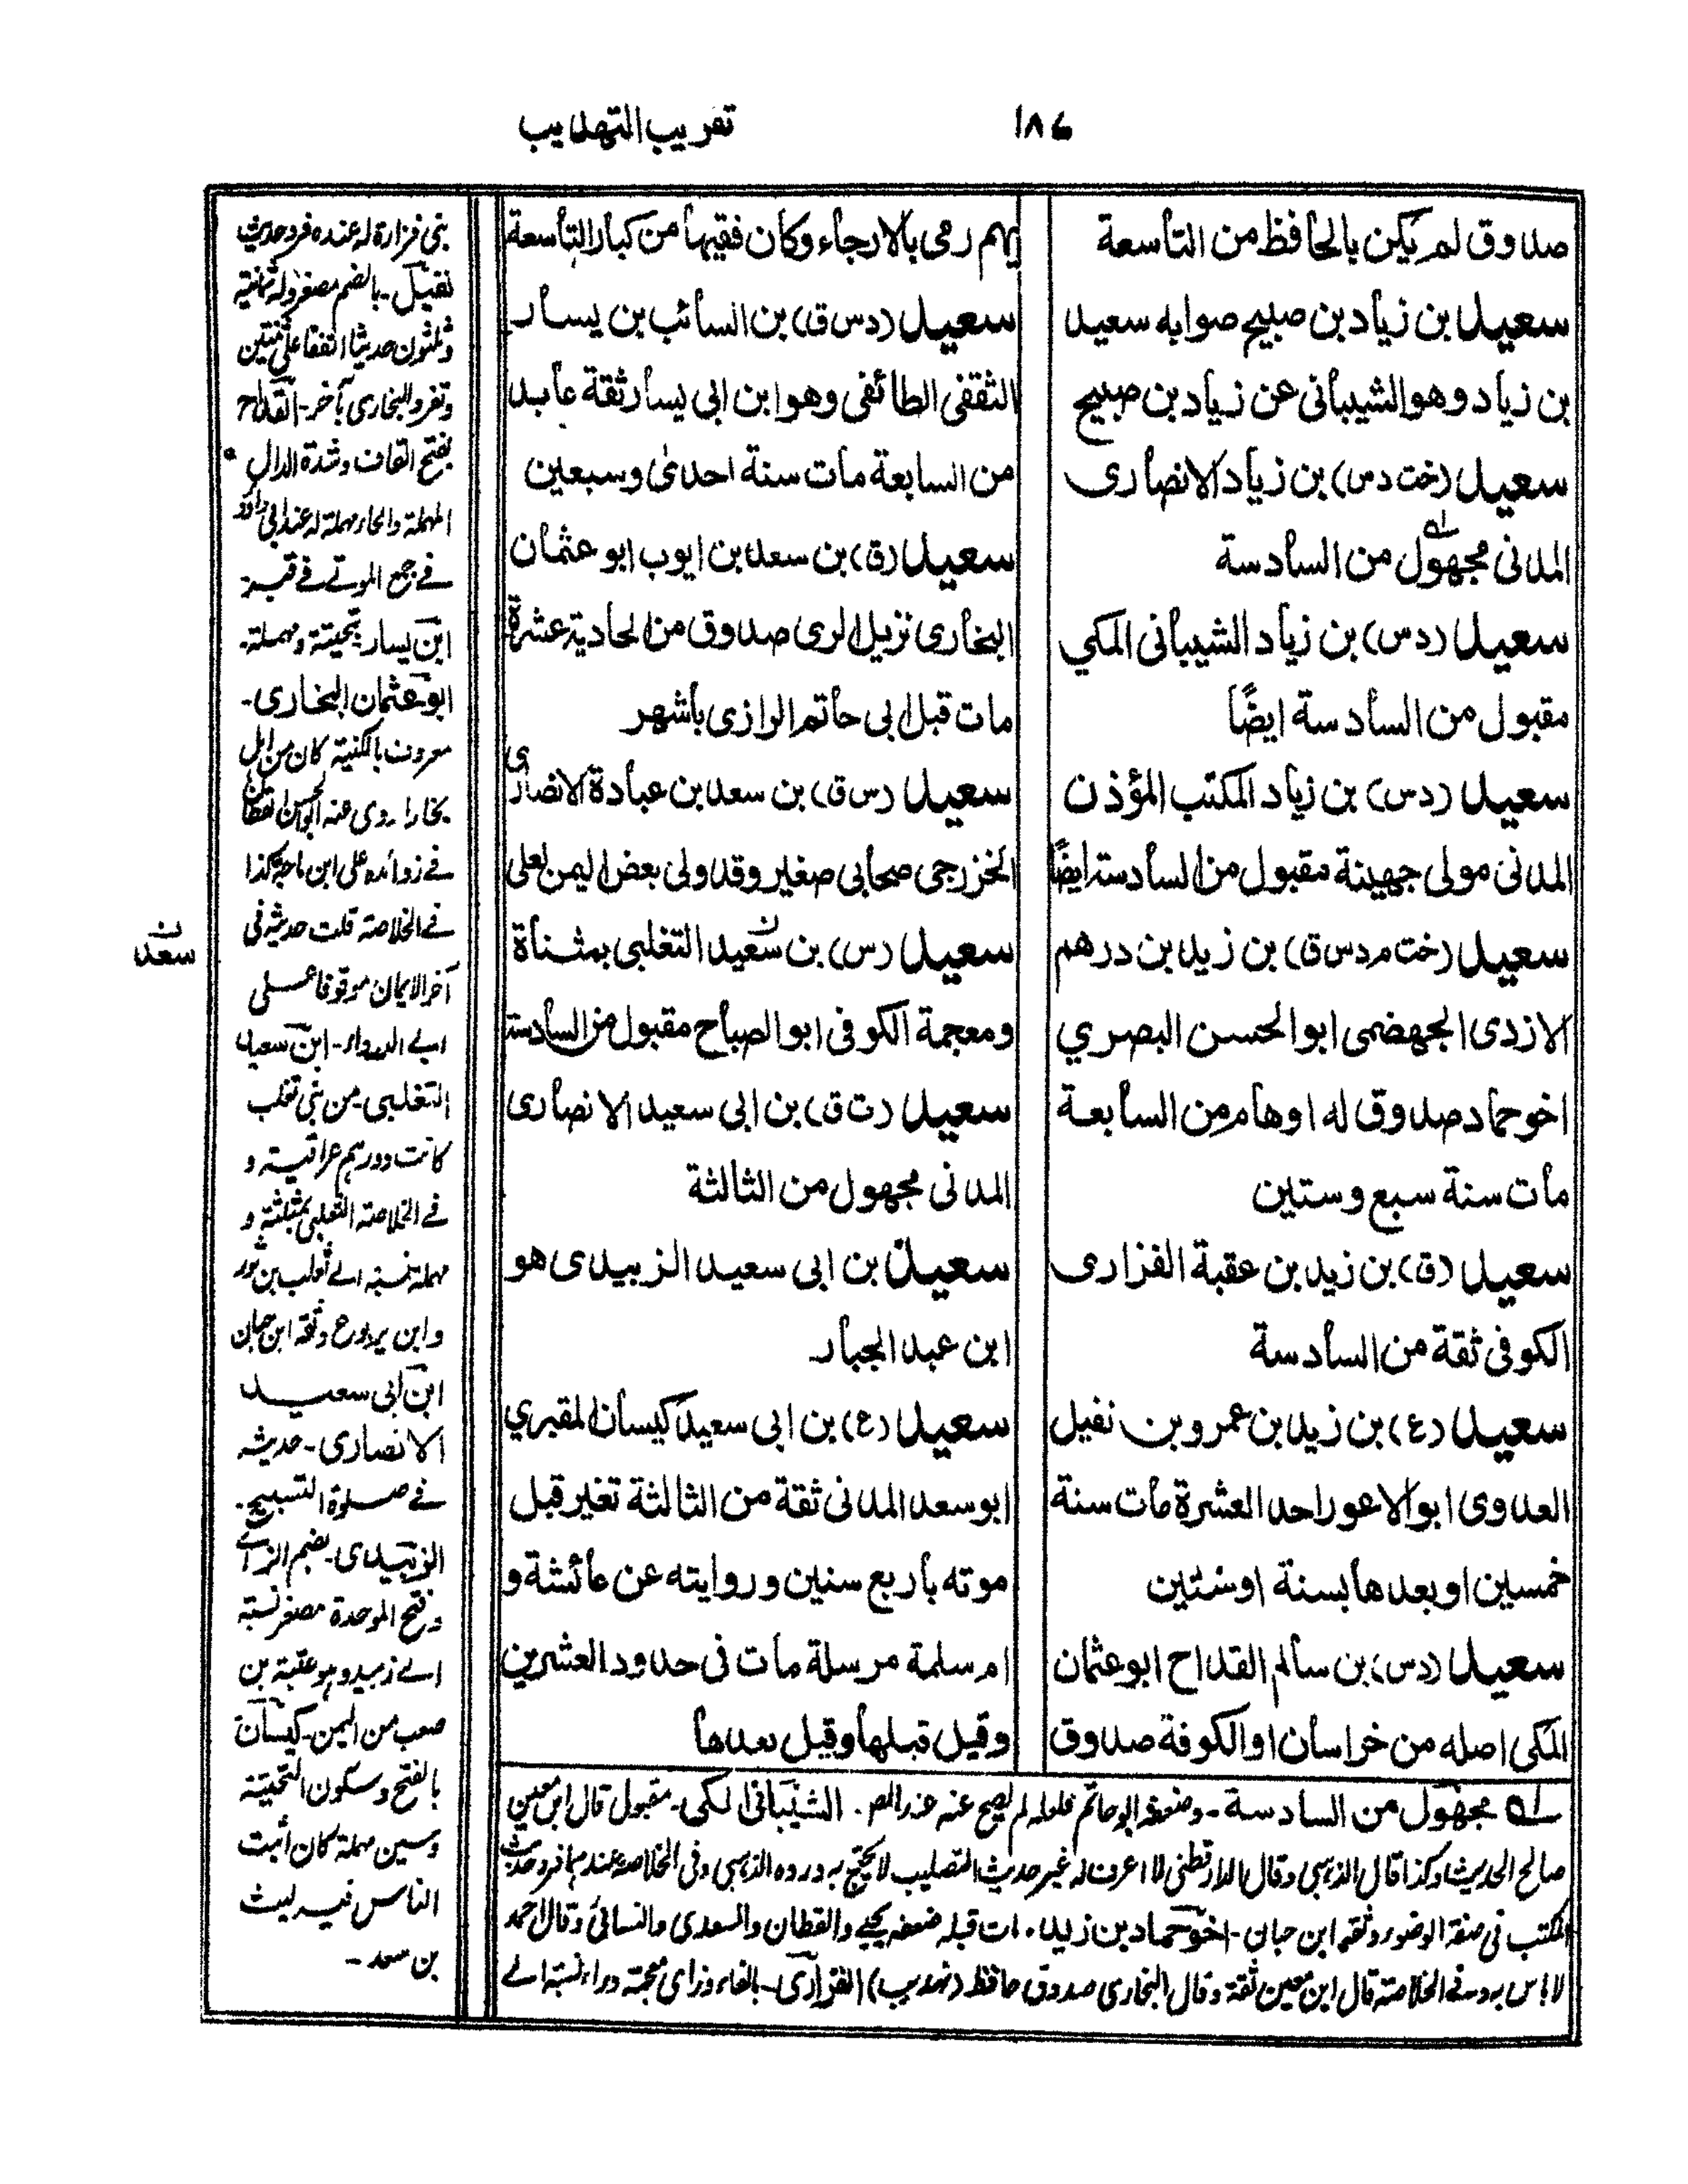 ١٨٤
تقريب التهذيب
صدوق لم يكن بالحافظ من التاسعة
سعيد بن زياد بن صبيح صوابه سعيد
بن زياد وهو الشيباني عن زياد بن صبيح
سعيد (خت دس) بن زياد الانصاري
المدنى مجهول من السادسة
سعيد (دس) بن زياد الشيبانى المكي
مقبول من السادسة ايضًا
سعيد (دس) بن زياد المكتب المؤذن
المدنى مولى جهينة مقبول من السادسة ايضًا
سعيد (خت م دس ق) بن زيد بن درهم
الازدى الجهضمى ابو الحسن البصري
اخو حماد صدوق له اوهام من السابعة
مات سنة سبع وستين
سعيد (ق) بن زيد بن عقبة الفزارى
الكوفى ثقة من السادسة
سعيد (ع) بن زيد بن عمرو بن نفيل
العدوى ابو الاعور احد العشرة مات سنة
خمسين او بعدها بسنة او سنتين
سعيد (دس) بن سالم القداح ابو عثمان
المكى اصله من خراسان او الكوفة صدوق
يهم رمى بالارجاء وكان فقيها من كبار التاسعة
سعيد (دس ق) بن السائب بن يسار
الثقفى الطائفى وهو ابن ابى يسار ثقة عابد
من السابعة مات سنة احدى وسبعين
سعيد (ق) بن سعد بن ايوب ابو عثمان
البخارى نزيل الرى صدوق من الحادية عشرة
مات قبل ابى حاتم الرازى باشهر
سعيد (س ق) بن سعد بن عبادة الانصارى
الخزرجى صحابى صغير وقد ولى بعض اليمن لعلى
سعيد (س) بن سعيد التغلبى بمثناة
ومعجمة الكوفى ابو الصباح مقبول من السادسة
سعيد (ت ق) بن ابى سعيد الانصارى
المدنى مجهول من الثالثة
سعيد بن ابى سعيد الزبيدى هو
ابن عبد الجبار
سعيد (ع) بن ابى سعيد كيسان المقبري
ابو سعد المدنى ثقة من الثالثة تغير قبل
موته باربع سنين وروايته عن عائشة و
ام سلمة مرسلة مات فى حدود العشرين
وقيل قبلها وقيل بعدها
بنى فزارة له عنده فرد حديث
نفيل - بالضم مصغر وله ثمانية
وثلثون حديثا اتفقا على ثنتين
وتفرد البخارى بآخر - القداح
بفتح القاف وشدة الدال
المهملة والحاء مهملة له عند ابى داؤد
فے جمع الموتے فے قبر
ابن يسار بتحيتة ومهملة -
ابو عثمان البخارى -
معروف بالكنية كان من اهل
بخارا روى عنه ابو الحسن القطان
فے زوائده على ابن ماجة كذا
فے الخلاصة قلت حديثه فى
آخر الايمان موقوفا على
ابے الدرداء - ابن سعيد
التغلبى - من بنى تغلب
كانت دورهم عراقية و
فے الخلاصة الثعلبى بمثلثة و
مهملة نسبة الے ثعلب بن ثور
وابن يربوع وثقه ابن حبان
ابن ابى سعيد
الانصارى - حديثه
فے صلوة التسبيح -
الزبيدى - بضم الزاے
وفتح الموحدة مصغر نسبة
الے زبيد وهو عتبة بن
صعب من اليمن - كيسان
بالفتح وسكون التحتية
وسين مهملة كان اثبت
الناس فيه ليث
بن سعد -
سعد
له مجهول من السادسة - وضعفه ابو حاتم فلعله لم يصح عنه عند المص . الشيبانى المكى - مقبول قال ابن معين
صالح الحديث وكذا قال الذهبى وقال الدارقطنى لا اعرف له غير حديث التصليب لا يحتج به ورده الذهبى وفى الخلاصة عندهما فرد حديث
المكتب فى صفة الوضوء وثقه ابن حبان - اخو حماد بن زيد . مات قبله ضعفه يحيے والقطان والسعدى والنسائى وقال احمد
لا باس به وفے الخلاصة قال ابن معين ثقة وقال البخارى صدوق حافظ (تهذيب) الفزارى - بالفاء وزاى معجمة وراء نسبة الے